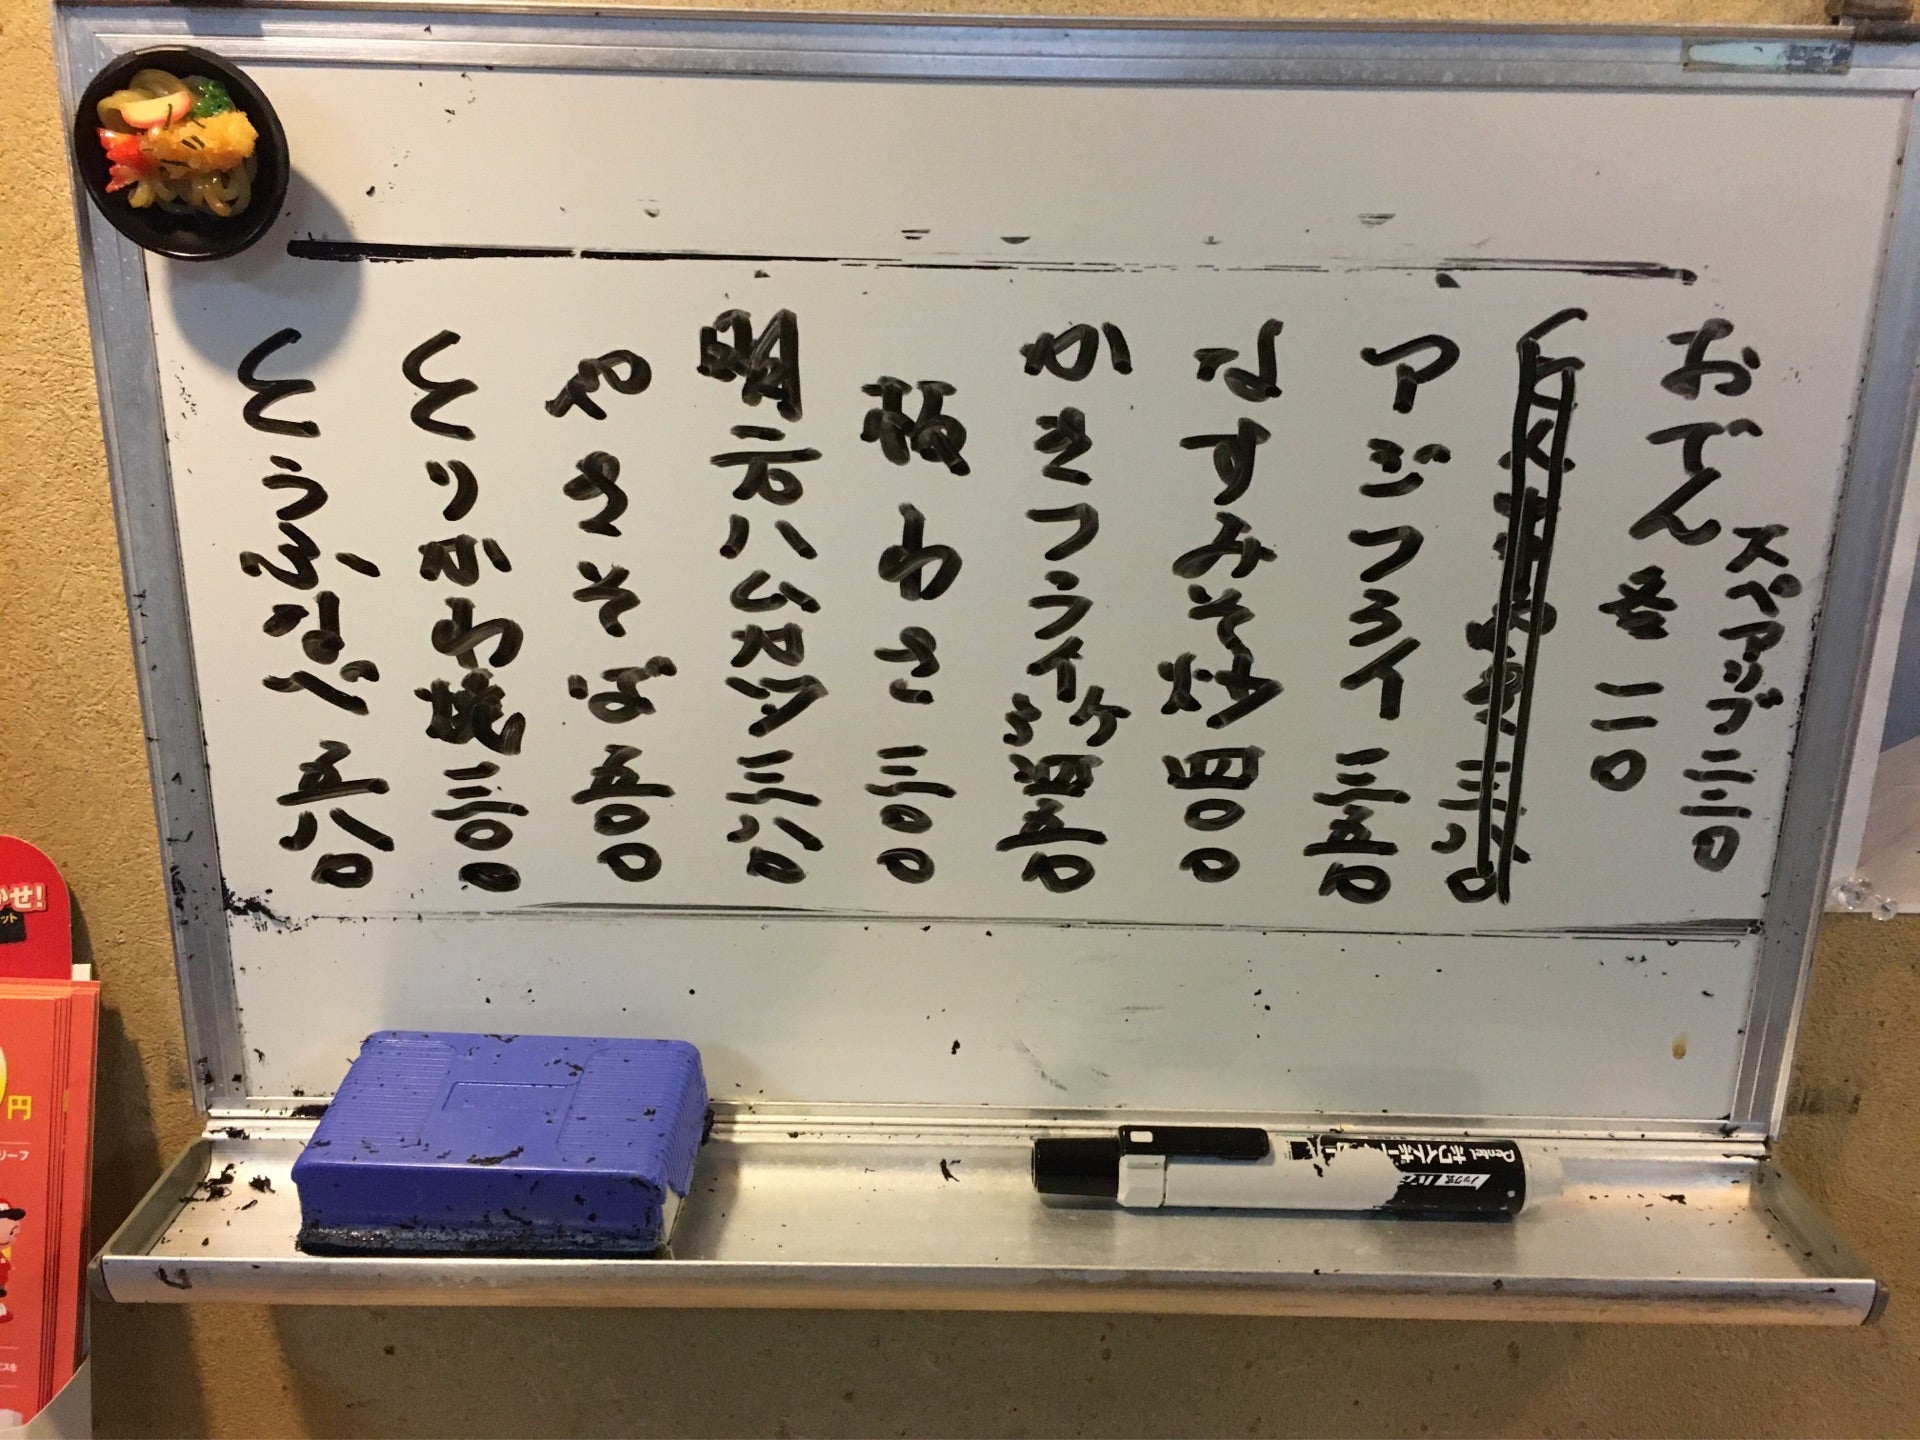 スペアリブ 三三〇
おでん 各 一一〇
アジフライ 三五〇
なすみそ炒 四〇〇
かきフライ 5ケ 四五〇
板わさ 三〇〇
明太ハムカツ 三八〇
やきそば 五〇〇
とりかわ焼 三〇〇
とうふなべ 五八〇
かせ!
ット
円
リーフ
Pentel ホワイトボードマーカー
ノック式